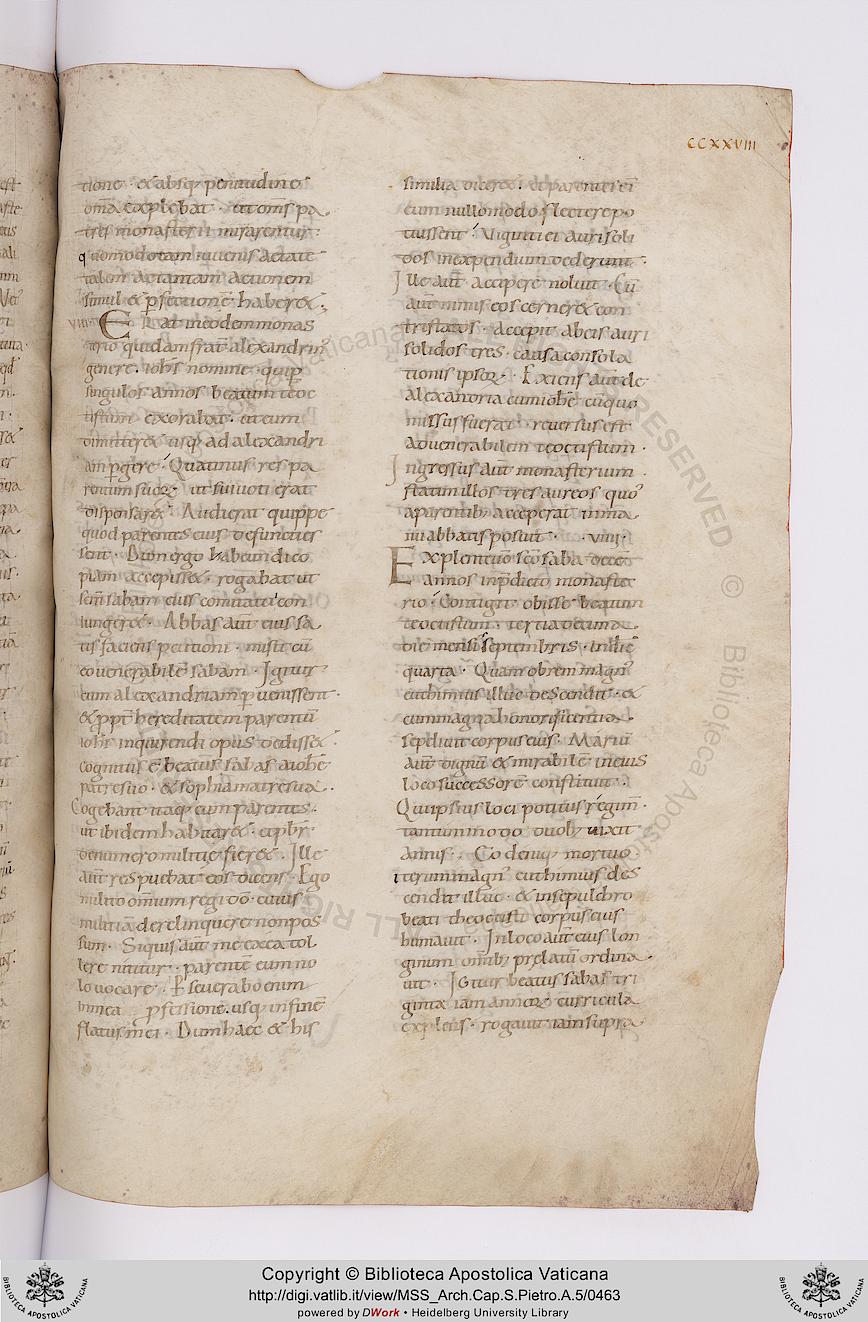 CCXXVIII
tione · & absq; penitudine
om̅a explebat · ut om̅s pa
tres monasterii mirarentur ·
quomodo tam iuuenis aetate
talem ac tantam actionem
simul & p̲fectione̅ haber& ·,
VIII · Erat in eodem monas
terio quidam frat̅ alexandrin'
genere · ioh̅s nomine · qui p̲
singulos annos beatum teoc
tistum exorabat · ut eum
dimitter& usq; ad alexandri
am p̲gere · Quatinus res pa
rentum suoꝝ · ut sui uoti erat
dispensar& · Audierat quippe
quod parentes eius defuncti es
sent · Dum ergo habeundi co
piam accepiss& · rogabat ut
sc̅m sabam eius comitatui con
iunger& · Abbas aut̅ eius sa
tis faciens petitioni · misit cu̅
eo uenerabile̅ sabam · Igitur
cum alexandriam p̲uenissent ·
& p̲pt̅ hereditatem parentu̅
ioh̅s inquirendi opus dediss& ·
cognitus e̅ beatus sabas a ioh̅e
patre suo · & sophia matre sua ·
Cogebant itaq; eum parentes ·
ut ibidem habitar& · et p̲b̅r ·
de numero militie̜ fier& · Ille
aut̅ respuebat eos dicens · Ego
milito omnium regi d̅o · cuius
militiam derelinquere non pos
sum · Siquis aut̅ me ex ea tol
lere nititur · parente̅ eum no
lo uocare · P̲seuerabo enim
in mea p̲fessione · usq; in fine̅
flatus mei · Dum haec & his
similia dicer& · et parentes ei'
eum nullomodo flectere po
tuissent · Viginti ei auri soli
dos in expendium dederunt ·
Ille aut̅ accipere noluit · Cu̅
aut̅ nimis eos cerner& con
tristatos · accepit ab eis auri
solidos tres · causa consola
tionis ipsoꝝ · Exiens aut̅ de
alexandria cum ioh̅e cu̅ quo
missus fuerat · reuersus est
ad uenerabilem teoctistum ·
Ingressus aut̅ monasterium
statim illos tres aureos quos
a parentib; acceperat in ma
nu abbatis posuit · VIIII ·
Explente u̅o sc̅o saba dece̅
annos in p̲dicto monaste
rio · Contigit obisse beatum
teoctistum · tertia decima
die mensis septembris · indic̅
quarta · Quam ob rem magn'
euthimius illuc descendit · &
cum magna honorificentia ·
sepeliuit corpus eius · Mariu̅
aut̅ dignu̅ & mirabile̅ in eius
loco successore̅ constituit ·
Qui ipsius loci potitus regim̅ ·
tantummodo duob; uixit
annis · Eo deniq; mortuo ·
iterum magn' euthimius des
cendit illuc · & in sepulchro
beati theoctisti corpus eius
humauit · In loco aut̅ eius lon
ginum om̅ib; pre̜latu̅ ordina
uit · Igitur beatus sabas tri
ginta iam annoꝝ curricula
expleus · rogauit iam supra
Copyright © Biblioteca Apostolica Vaticana
http://digi.vatlib.it/view/MSS_Arch.Cap.S.Pietro.A.5/0463
powered by DWork • Heidelberg University Library